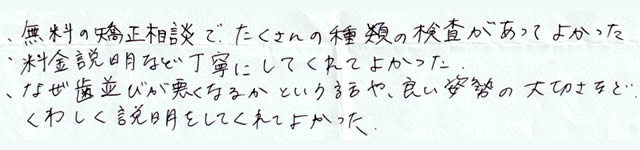 、無料の矯正相談で、たくさんの種類の検査があってよかった
、料金説明など丁寧にしてくれてよかった.
、なぜ歯並びが悪くなるかという話や、良い姿勢の大切さなど.
くわしく説明をしてくれてよかった.